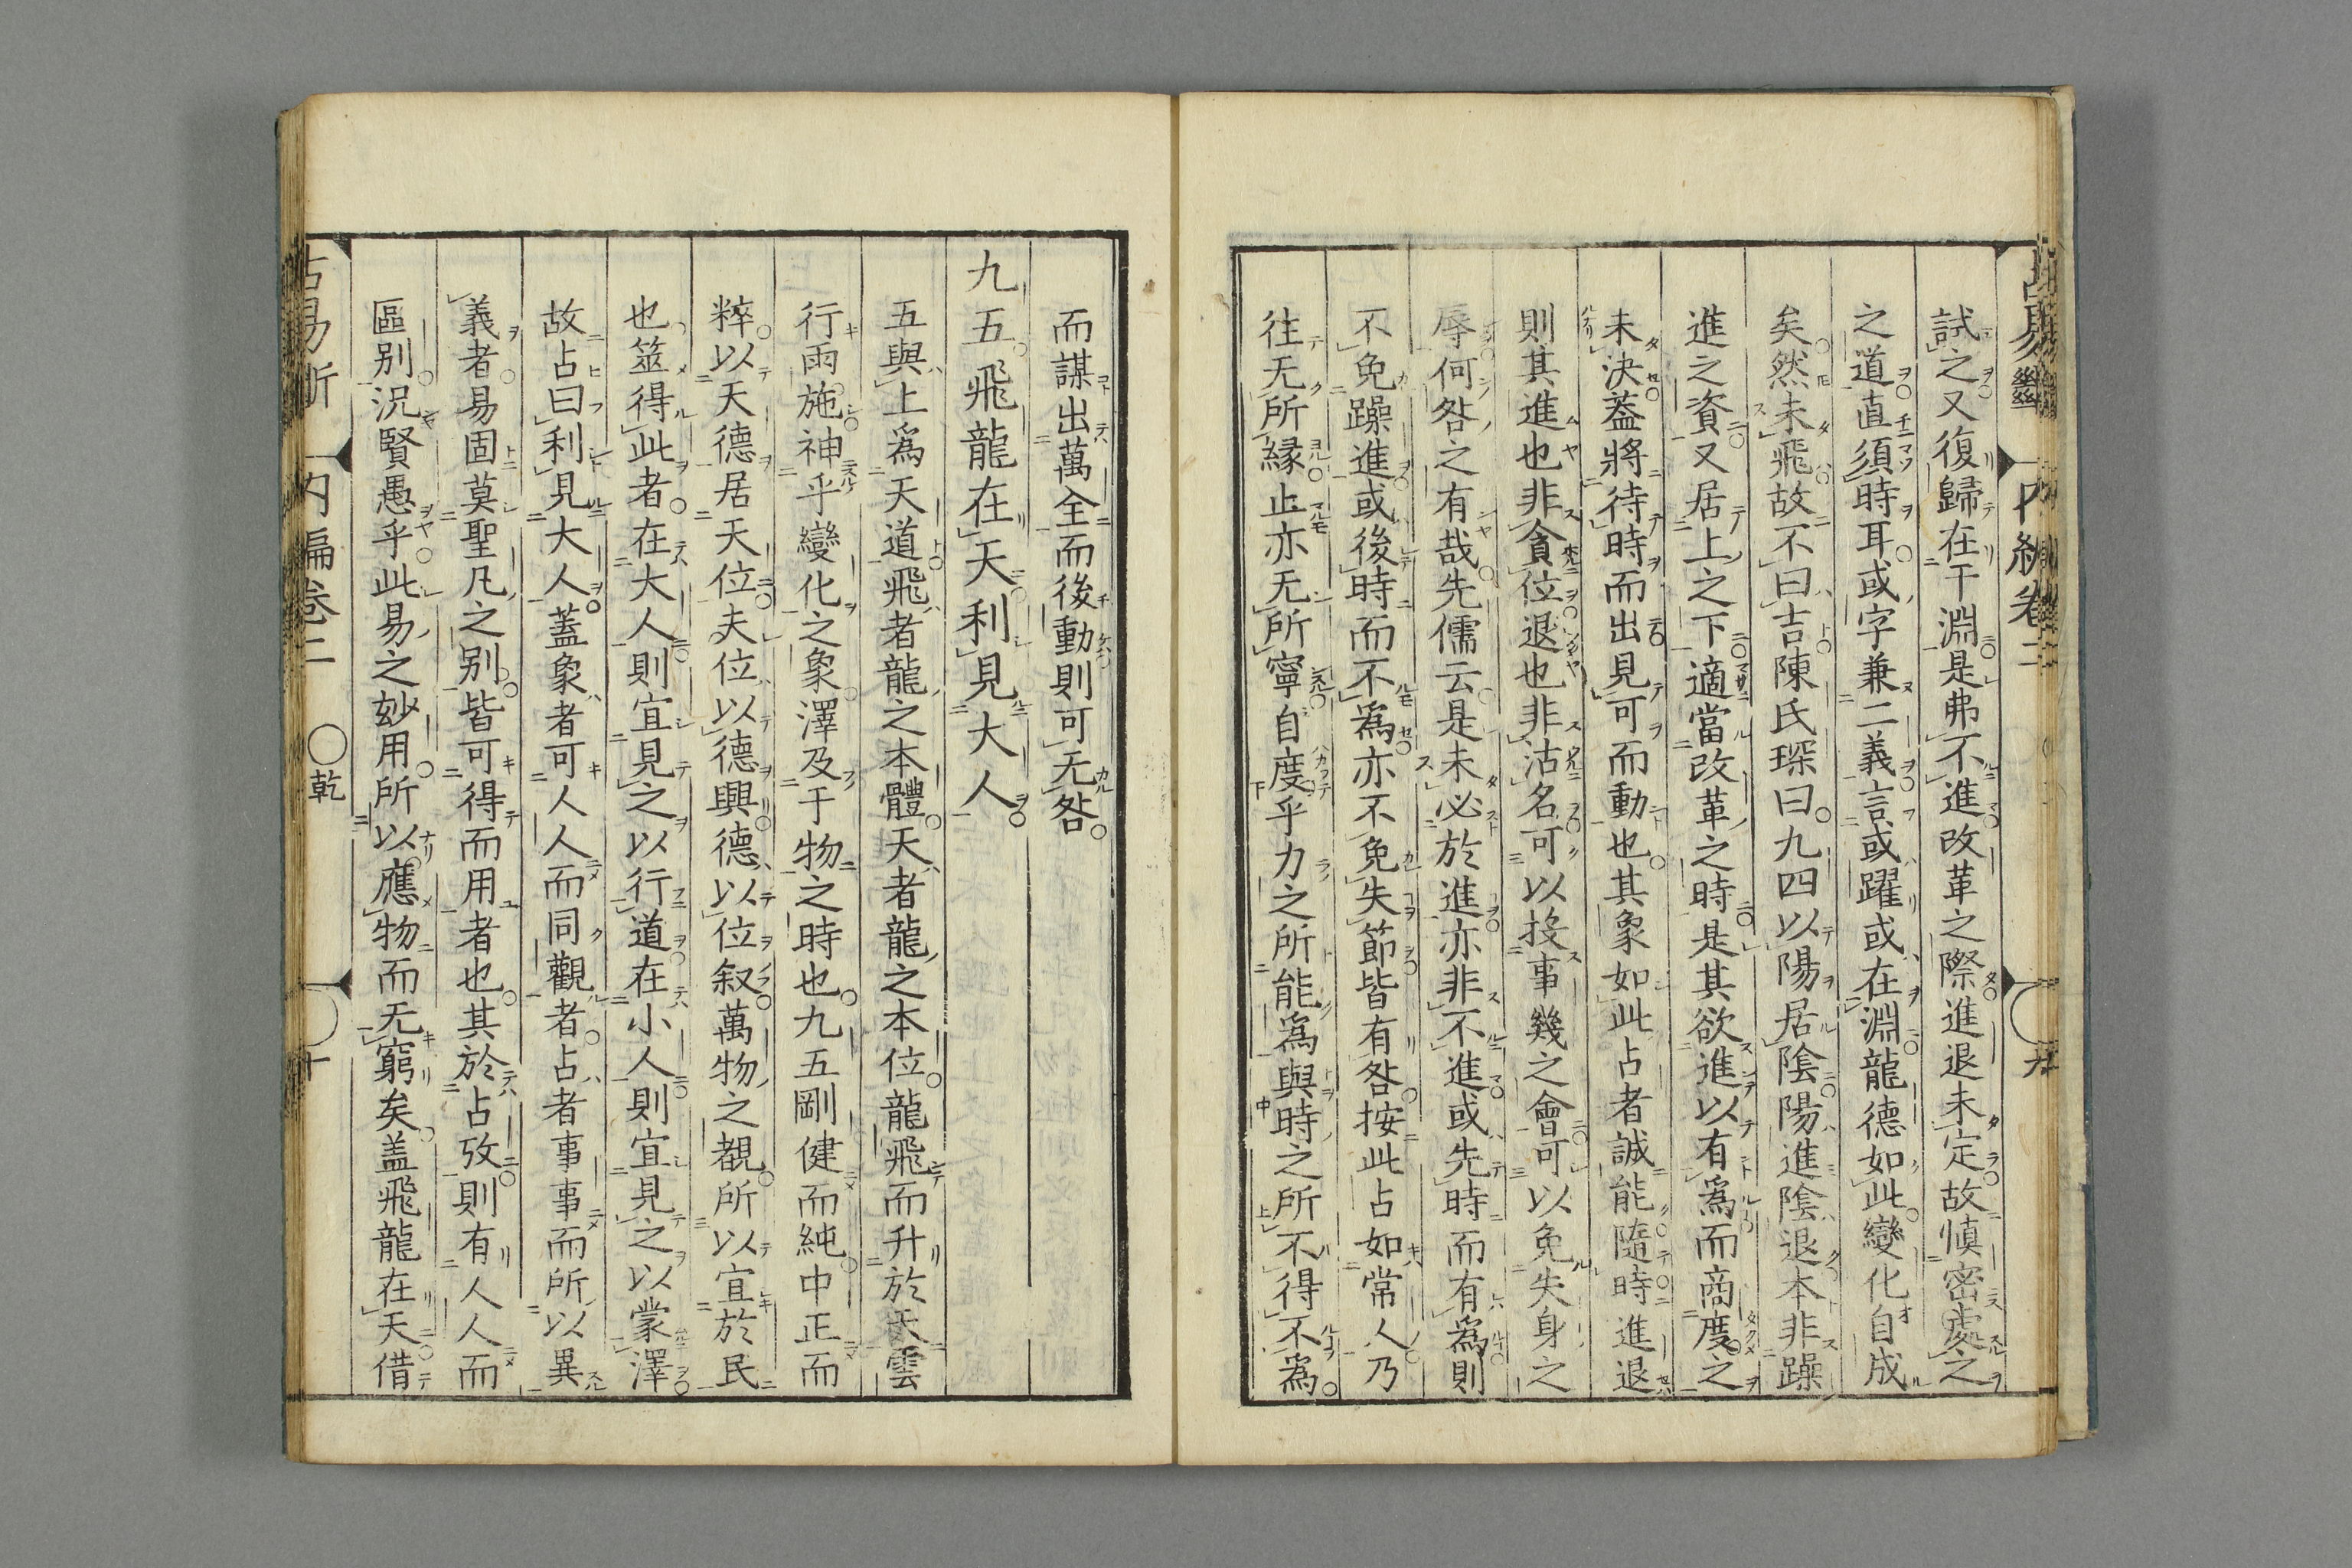 試之又復歸在干淵是弗不進改革之際進退未定故愼密處之
之道直須時耳或字兼二義言或躍或在淵龍德如此變化自成
矣然未飛故不曰吉陳氏琛曰九四以陽居陰陽進陰退本非躁
進之資又居上之下適當改革之時是其欲進以有爲而商度之
未決蓋將待時而出見可而動也其象如此占者誠能隨時進退
則其進也非貪位退也非沽名可以投事幾之會可以免失身之
辱何咎之有哉先儒云是未必於進亦非不進或先時而有爲則
不免躁進或後時而不爲亦不免失節皆有咎按此占如常人乃
往无所緣止亦无所寧自度乎力之所能爲與時之所不得不爲
而謀出萬全而後動則可无咎
九五飛龍在天利見大人
五與上爲天道飛者龍之本體天者龍之本位龍飛而升於天雲
行雨施神乎變化之象澤及于物之時也九五剛健而純中正而
粹以天德居天位夫位以德興德以位叙萬物之覩所以宜於民
也筮得此者在大人則宜見之以行道在小人則宜見之以蒙澤
故占曰利見大人蓋象者可人人而同觀者占者事事而所以異
義者易固莫聖凡之別皆可得而用者也其於占攷則有人人而
區别況賢愚乎此易之妙用所以應物而无窮矣盖飛龍在天借
内編卷二 〇乾 十